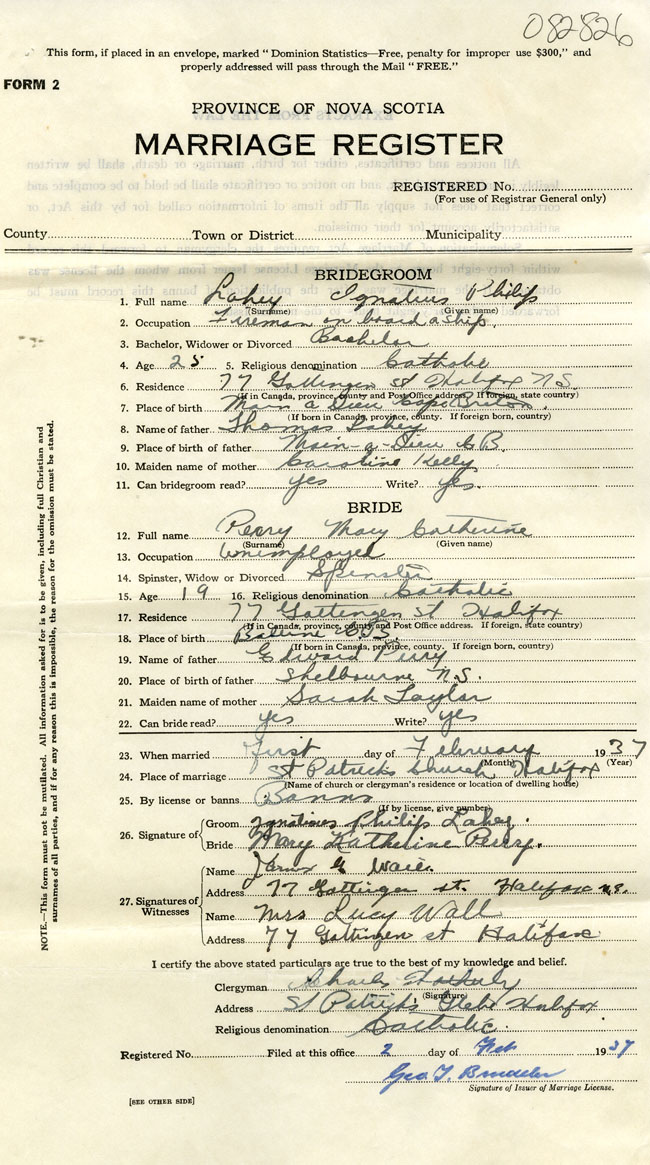 082826
This form, if placed in an envelope, marked “Dominion Statistics—Free, penalty for improper use $300,” and
properly addressed will pass through the Mail “FREE.”
FORM 2
PROVINCE OF NOVA SCOTIA
MARRIAGE REGISTER
REGISTERED No.
(For use of Registrar General only)
County Town or District Municipality
BRIDEGROOM
1. Full name Lahey Ignatius Philip
(Surname) (Given name)
2. Occupation Fireman on board a ship.
3. Bachelor, Widower or Divorced Bachelor
4. Age 25 5. Religious denomination Catholic
6. Residence 77 Gottingen st Halifax N.S.
(If in Canada, province, county and Post Office address. If foreign, state country)
7. Place of birth Main a Dieu Cape Breton.
(If born in Canada, province, county. If foreign born, country)
8. Name of father Thomas Lahey
9. Place of birth of father Main-a-Dieu C.B.
10. Maiden name of mother Caroline Kelly
11. Can bridegroom read? yes Write? yes.
BRIDE
12. Full name Perry Mary Catherine
(Surname) (Given name)
13. Occupation Unemployed
14. Spinster, Widow or Divorced Spinster
15. Age 19 16. Religious denomination Catholic
17. Residence 77 Gottingen st Halifax
(If in Canada, province, county and Post Office address. If foreign, state country)
18. Place of birth
(If born in Canada, province, county. If foreign born, country)
19. Name of father Edward Perry
20. Place of birth of father Shelbourne N.S.
21. Maiden name of mother Sarah Taylor
22. Can bride read? yes Write? yes
23. When married First day of February 1937
(Month) (Year)
24. Place of marriage St Patricks Church Halifax
(Name of church or clergyman's residence or location of dwelling house)
25. By license or banns Banns
(If by license, give number)
26. Signature of
Groom Ignatius Philip Lahey.
Bride Mary Katherine Perry.
27. Signatures of Witnesses
Name
Address 77 Gottingen st. Halifax N.S.
Name Mrs Lucy Wall
Address 77 Gottingen st Halifax
I certify the above stated particulars are true to the best of my knowledge and belief.
Clergyman Charles
(Signature)
Address St Patricks Glebe Halifax
Religious denomination Catholic.
Registered No. Filed at this office 2 day of Feb 1937
Geo. T.
Signature of Issuer of Marriage License.
[SEE OTHER SIDE]
NOTE.—This form must not be mutilated. All information asked for is to be given, including full Christian and
surnames of all parties, and if for any reason this is impossible, the reason for the omission must be stated.